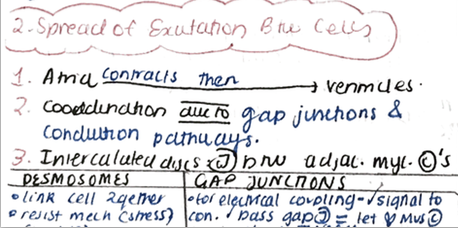 2. Spread of Exutation Btw Cells
1. Atria contracts then → ventricles.
2. Coordination due to gap junctions &
conduction pathways.
3. Intercalated discs (J) btw adjac. myc. ©'s
DESMOSOMES GAP JUNCTIONS
• link cell 2gether • for electrical coupling - √ signal to
• resist mech (stress) con. √ pass gap (J) = let ♡ Mus ©